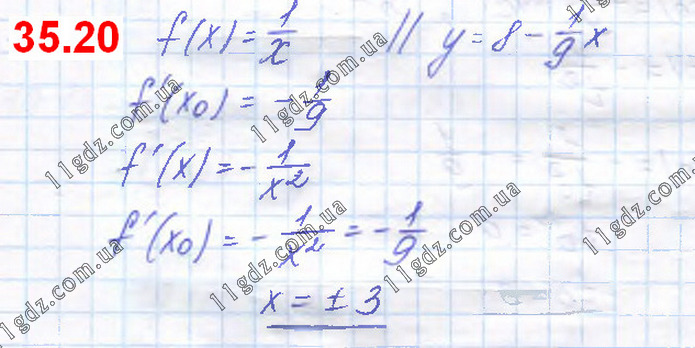 35.20 f(x) = 1/x // y = 8 - 1/9 x
f'(x₀) = - 1/9
f'(x) = - 1/x²
f'(x₀) = - 1/x² = - 1/9
x = ± 3
11gdz.com.ua
11gdz.com.ua
11gdz.com.ua
11gdz.com.ua
11gdz.com.ua
11gdz.com.ua
11gdz.com.ua